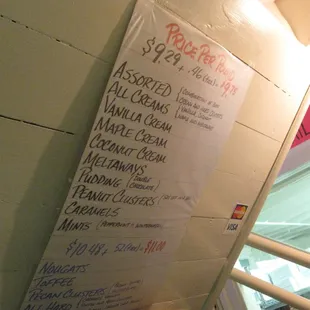 PRICE PER POUND
$9.29 + .46 (tax) = $9.75
ASSORTED (COMBINATION OF ANY
ALL CREAMS
VANILLA CREAM
MAPLE CREAM
COCONUT CREAM
MELTAWAYS
PUDDING (DOUBLE CHOCOLATE)
PEANUT CLUSTERS
CARAMELS
MINTS (PEPPERMINT + WINTERGREEN)
$10.48 + .52 (tax) = $11.00
NOUGATS
TOFFEE
PECAN CLUSTERS
ALL HARD
MasterCard
VISA